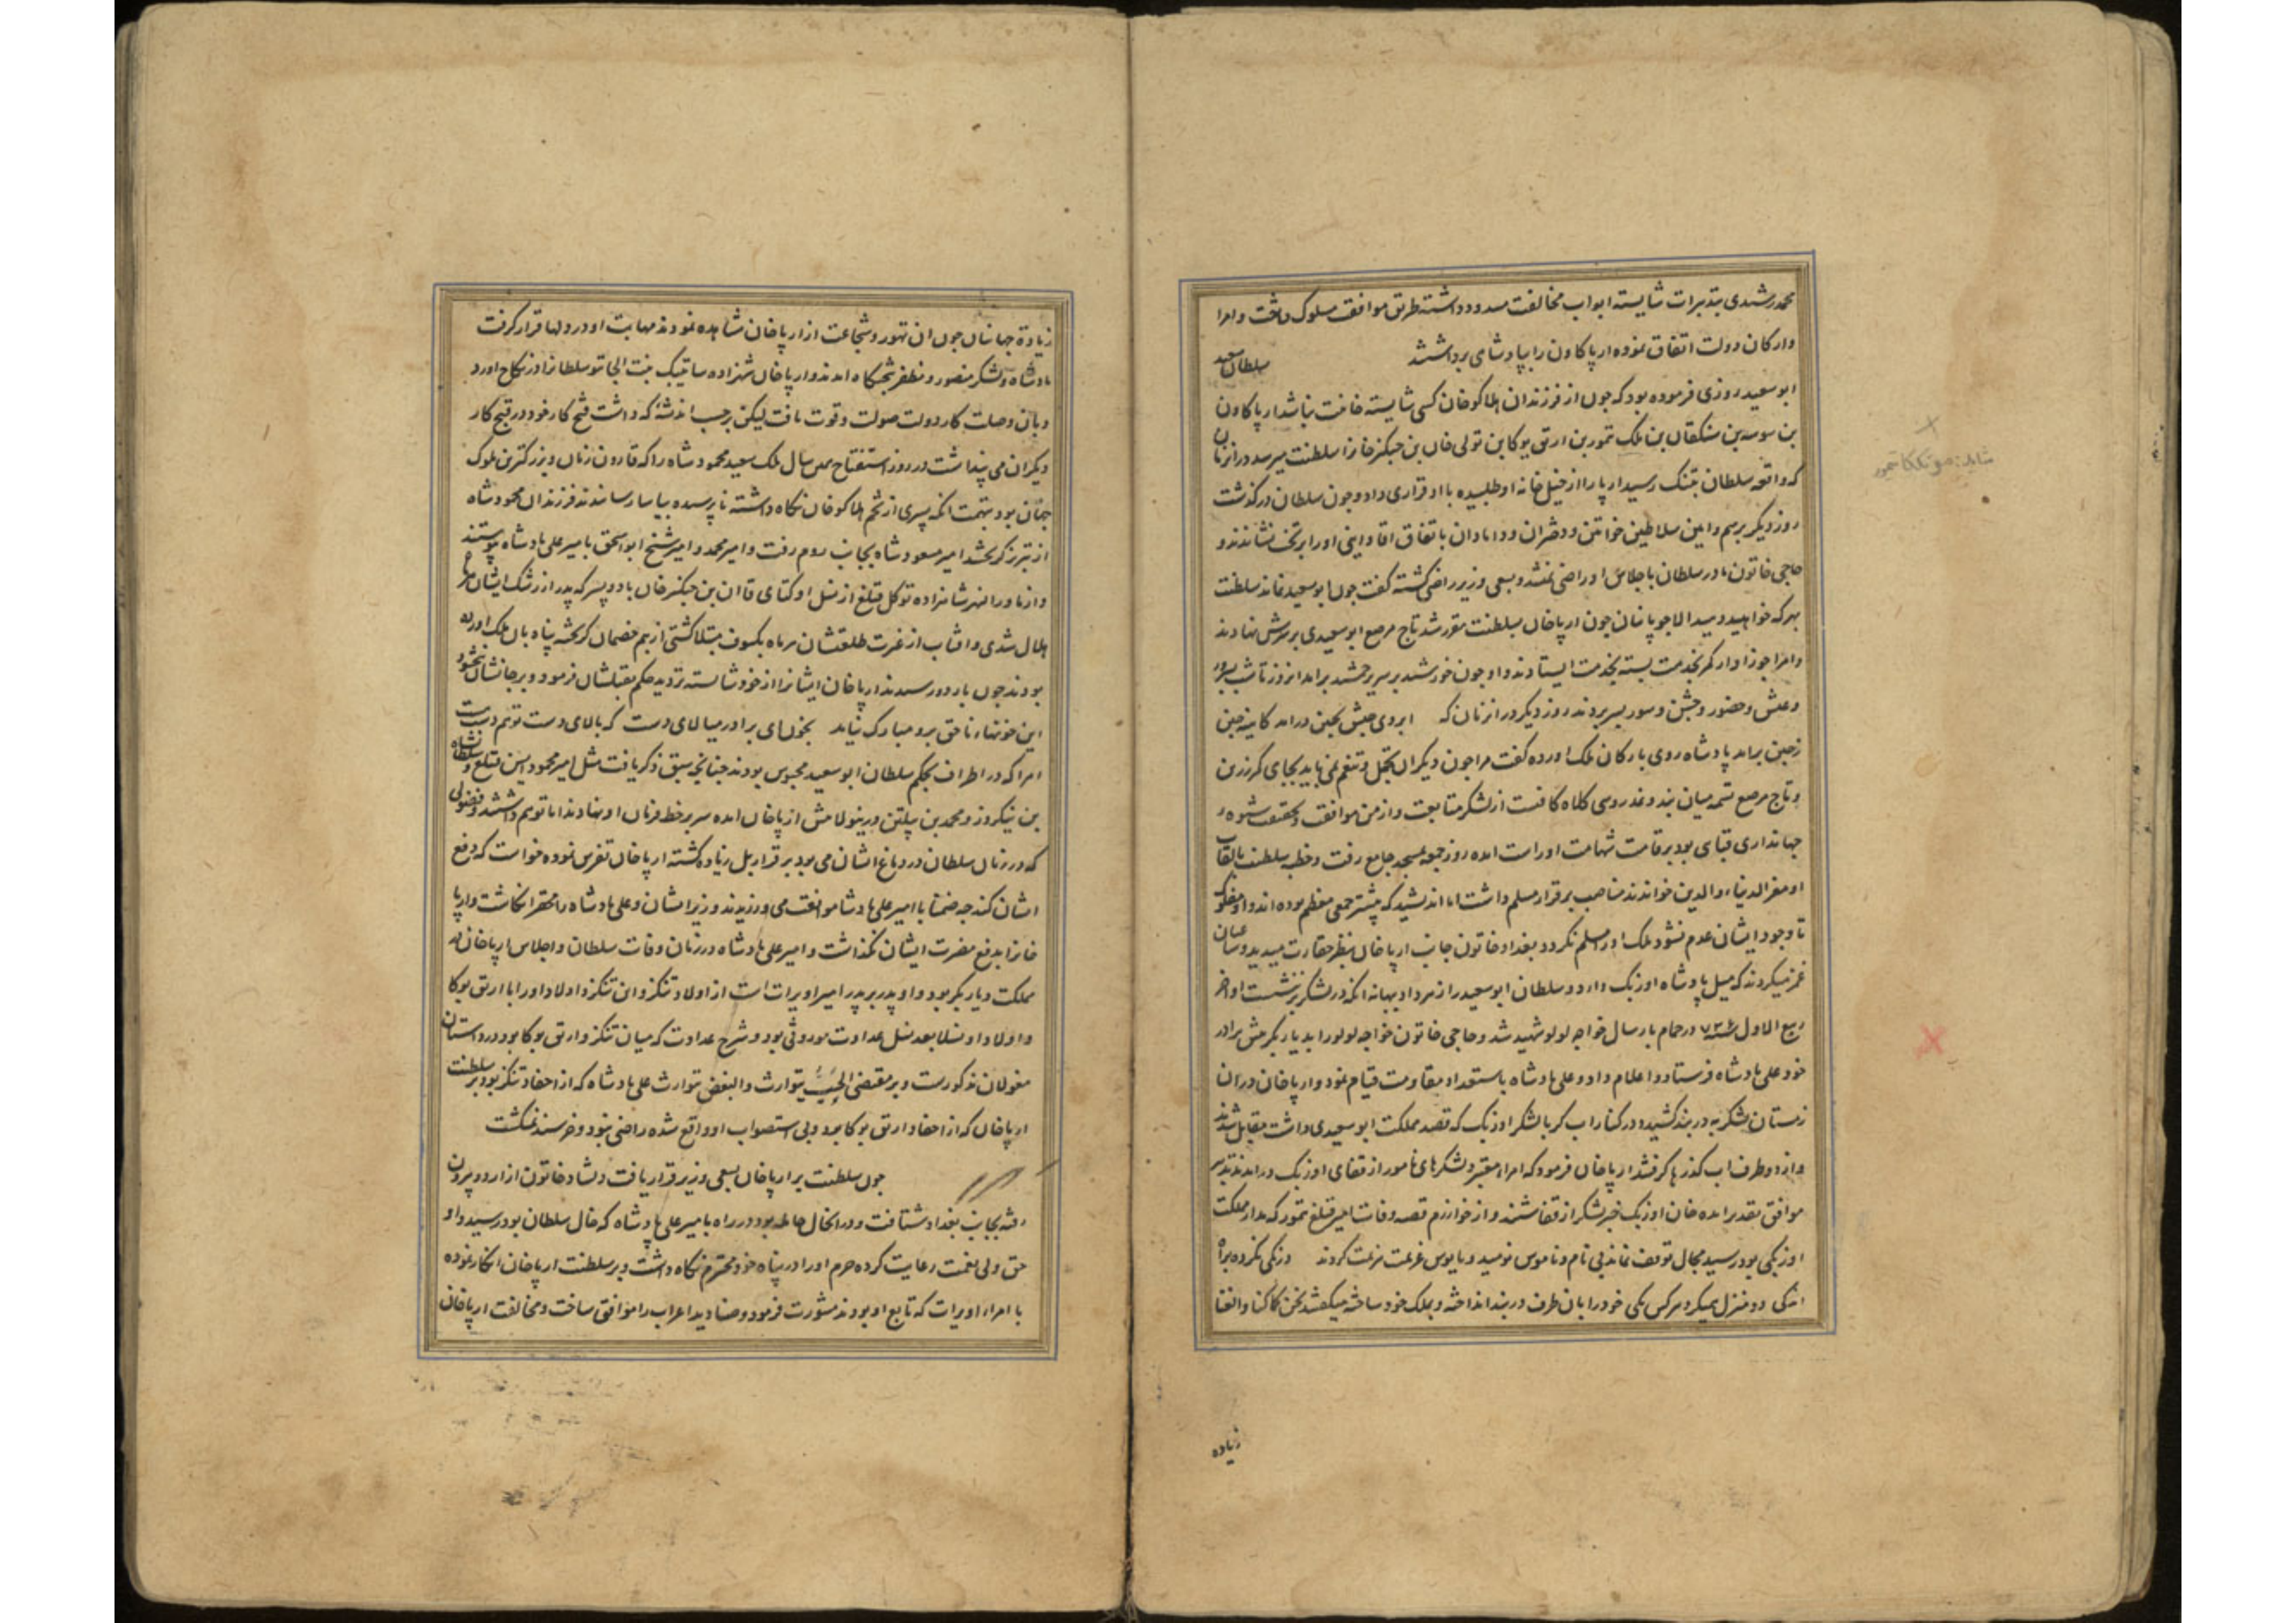 محمد رشیدی بتدبیرات شایسته ابواب مخالفت مسدود داشته طریق موافقت مسلوک داشت و امرا
و ارکان دولت اتفاق نموده ارپا کاون را بپادشاهی برداشتند سلطان سعید
ابو سعید روزی فرموده بود که چون از فرزندان هلاکو خان کسی شایسته خانیت نباشد ارپا کاون
بن سوسه بن سنکقان بن ملک تمور بن ارتق بوکا بن تولی خان بن جنکیز خانرا سلطنت میرسد در ان زمان
که واقعه سلطان بتنک رسید ارپا را از خیل خانه او طلبیده با او قراری داد و چون سلطان درکذشت
روز دیکر برسم و ایین سلاطین خواتین و دختران و دامادان باتفاق اقا و اینی او را بر تخت نشاندند و
حاجی خاتون مادر سلطان باجلاس او راضی نمیشد و بسعی وزیر راضی کشته کفت چون ابو سعید نماند سلطنت
بهر که خواهید دهید الا چوپانیان چون ارپا خان بسلطنت مقرر شد تاج مرصع ابو سعیدی بر سرش نهادند
و امرا جوزا وار کمر بخدمت بسته بخدمت ایستادند و او چون خورشید بر سریر جمشید برامد ان روز تا شب بسرور
و عیش و حضور و جشن و سور بسر بردند روز دیکر در ان زمان که ابروی حبش بچین درامد کایینه چین
ز چین برامد پادشاه روی بارکان ملک اورده کفت مرا چون دیکران تجمل و تنعم نمی باید بجای کمر زرین
و تاج مرصع تسمه میان بند و نمد روی کلاه کافیست از لشکر متابعت و از من موافقت و بحقیقت شیوه
جهانداری قبای بود بر قامت شهامت او راست امده روز جمعه بمسجد جامع رفت و خطبه سلطنت بالقاب
او معز الدنیا و الدین خواندند مناصب برقرار مسلم داشت اما اندیشید که پیشتر جمعی معظم بوده اند و او مفلوک
تا وجود ایشان عدم نشود ملک او را مسلم نکردد بغداد خاتون جانب ارپا خان بنظر حقارت میدید و ساعیان
غمز میکردند که میل پادشاه اوزبک دارد و سلطان ابو سعید را زهر داد و بهانه انکه در لشکر برنشست اواخر
ربیع الاول ۷۳۶ در حمام بارسال خواجه لولو شهید شد و حاجی خاتون خواجه لولو را بدیار بکر پیش برادر
خود علی پادشاه فرستاد و اعلام داد و علی پادشاه باستعداد مقاومت قیام نمود و ارپا خان در ان
زمستان لشکر به دربند کشید و در کنار اب کر با لشکر اوزبک که قصد مملکت ابو سعیدی داشت مقابل شدند
و از دو طرف اب کذرها کرفتند ارپا خان فرمود که امراء معتبر و لشکرهای نامور از قفای اوزبک درایند تدبیر
موافق تقدیر امده خان اوزبک خبر لشکر از قفا شنید و از خوارزم قصه وفات امیر قتلغ تمور که مدار مملکت
اوزبکی بود رسید مجال توقف نماند بی نام و ناموس نومید و مایوس عزیمت هزیمت کردند درنکی نکرده براه
اندکی دو منزل یکی کرد هرکس یکی خود را بان طرف دربند انداخته و بملک خود ساخته میکفتند نحن کما کنا و العنا
زیاده
شاید: مونککا تمور
زیادة جهانیان چون ان تهور و شجاعت از ارپا خان مشاهده نمودند مهابت او در دلها قرار کرفت
پادشاه و لشکر منصور و مظفر بتختکاه امدند و ارپا خان شهزاده ساتی بیک بنت الجایتو سلطانرا در نکاح اورد
و بان وصلت کار دولت صولت و قوت یافت لیکن بر حسب اندیشهٔ که داشت فتح کار خود در قبح کار
دیکران می پنداشت در روز استفتاح همین سال ملک سعید محمود شاه را که قارون زمان و بزرکترین ملوک
جهان بود بتهمت انکه پسری از تخم هلاکو خان نکاه داشته ناپرسیده بیاسا رسانیدند فرزندان محمود شاه
از تبریز کریختند امیر مسعود شاه بجانب روم رفت و امیر محمد و امیر شیخ ابو اسحق بامیر علی پادشاه پیوستند
و از ماورا النهر شاهزاده توکل قتلغ از نسل اوکتای قاان بن جنکیز خان با دو پسر که بدر از رشک ایشان
هلال شدی و افتاب از غیرت طلعتشان هر ماه بکسوف مبتلا کشتی از بیم خصمان کریخته پناه بان ملک اورده
بودند چون باردو رسیدند ارپا خان ایشانرا از خود شایسته تر دید حکم بقتلشان فرمود و بر جانشان نبخشود
این خونهاء ناحق برو مبارک نیامد بخون ای برادر میالای دست که بالای دست تو هم دست هست
امرا که در اطراف بحکم سلطان ابو سعید محبوس بودند چنانچه سبق ذکر یافت مثل امیر محمود ایسن قتلغ و سلطانشاه
بن نیکروز و محمد بن پیلتن و رینولامش از پا خان امده سر بر خط فرمان او نهادند اما توهم داشتند و فضولی
که در زمان سلطان در دماغ ایشان می بود برقرار بل زیاده کشته ارپا خان تفرس نموده خواست که دفع
ایشان کند چه ضمنا با امیر علی پادشا موافقت می ورزیدند وزیر ایشان و علی پادشاه را محقر انکاشت و ارپا
خانرا بدفع مضرت ایشان نکذاشت و امیر علی پادشاه در زمان وفات سلطان و اجلاس ارپا خان به
مملکت دیار بکر بود و او پدر بر پدر امیر اویرات است از اولاد تنکز و این تنکز و اولاد او را با ارتق بوکا
و اولاد او نسلا بعد نسل عداوت موروثی بود و شرح عداوت که میان تنکز و ارتق بوکا بود در داستان
مغولان مذکورست و بر مقتضی الحب یتوارث و البغض یتوارث علی پادشاه که از احفاد تنکز بود بر سلطنت
ارپا خان که از احفاد ارتق بوکا بود و بی استصواب او واقع شده راضی نبود و خرسند نمیکشت
چون سلطنت بر ارپا خان بسعی وزیر قرار یافت دلشاد خاتون از اردو بیرون
رفته بجانب بغداد شتافت و در انحال حامله بود در راه بامیر علی پادشاه که خال سلطان بود رسید و او
حق ولی نعمت رعایت کرده حرم او را در پناه خود محترم نکاه داشت و بر سلطنت ارپا خان انکار نموده
با امراء اویرات که تابع او بودند مشورت فرمود و صنادید اعراب را موافق ساخت و مخالفت ارپا خان